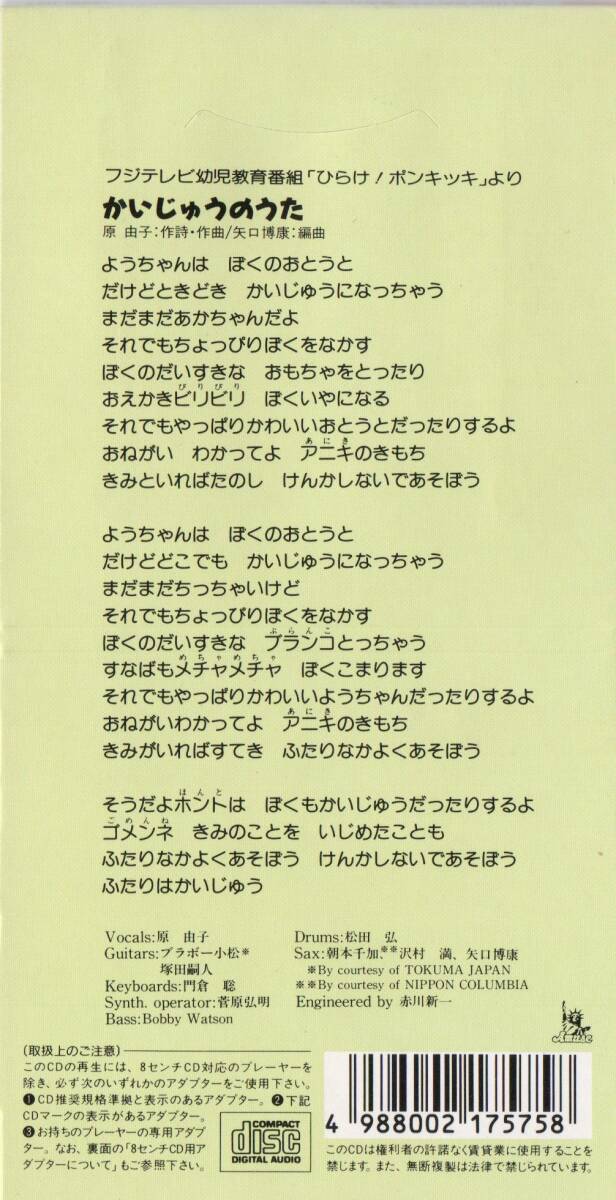 フジテレビ幼児教育番組「ひらけ！ポンキッキ」より
かいじゅうのうた
原　由子：作詩・作曲/矢口博康：編曲
ようちゃんは　ぼくのおとうと
だけどときどき　かいじゅうになっちゃう
まだまだあかちゃんだよ
それでもちょっぴりぼくをなかす
ぼくのだいすきな　おもちゃをとったり
びりびり
おえかきビリビリ　ぼくいやになる
それでもやっぱりかわいいおとうとだったりするよ
あにき
おねがい　わかってよ　アニキのきもち
きみといればたのし　けんかしないであそぼう
ようちゃんは　ぼくのおとうと
だけどどこでも　かいじゅうになっちゃう
まだまだちっちゃいけど
それでもちょっぴりぼくをなかす
ぶらんこ
ぼくのだいすきな　ブランコとっちゃう
めちゃめちゃ
すなばもメチャメチャ　ぼくこまります
それでもやっぱりかわいいようちゃんだったりするよ
あにき
おねがいわかってよ　アニキのきもち
きみがいればすてき　ふたりなかよくあそぼう
ほんと
そうだよホントは　ぼくもかいじゅうだったりするよ
ごめんね
ゴメンネ　きみのことを　いじめたことも
ふたりなかよくあそぼう　けんかしないであそぼう
ふたりはかいじゅう
Vocals:原　由子
Guitars:ブラボー小松※
塚田嗣人
Keyboards:門倉　聡
Synth. operator:菅原弘明
Bass:Bobby Watson
Drums:松田　弘
Sax:朝本千加、※※沢村　満、矢口博康
※By courtesy of TOKUMA JAPAN
※※By courtesy of NIPPON COLUMBIA
Engineered by 赤川新一
〔取扱上のご注意〕
このCDの再生には、8センチCD対応のプレーヤーを
除き、必ず次のいずれかのアダプターをご使用下さい。
❶CD推奨規格準拠と表示のあるアダプター。❷下記
CDマークの表示があるアダプター。
❸お持ちのプレーヤーの専用アダプ
ター。なお、裏面の「8センチCD用ア
ダプターについて」もご参照下さい。
COMPACT
disc
DIGITAL AUDIO
4 988002 175758
このCDは権利者の許諾なく賃貸業に使用することを
禁じます。また、無断複製は法律で禁じられています。